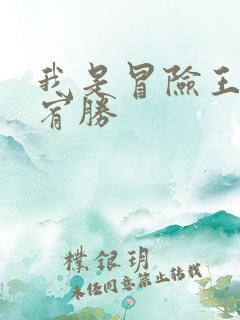 我是冒險王
宥勝
樸銀玥
未經同意禁止轉載